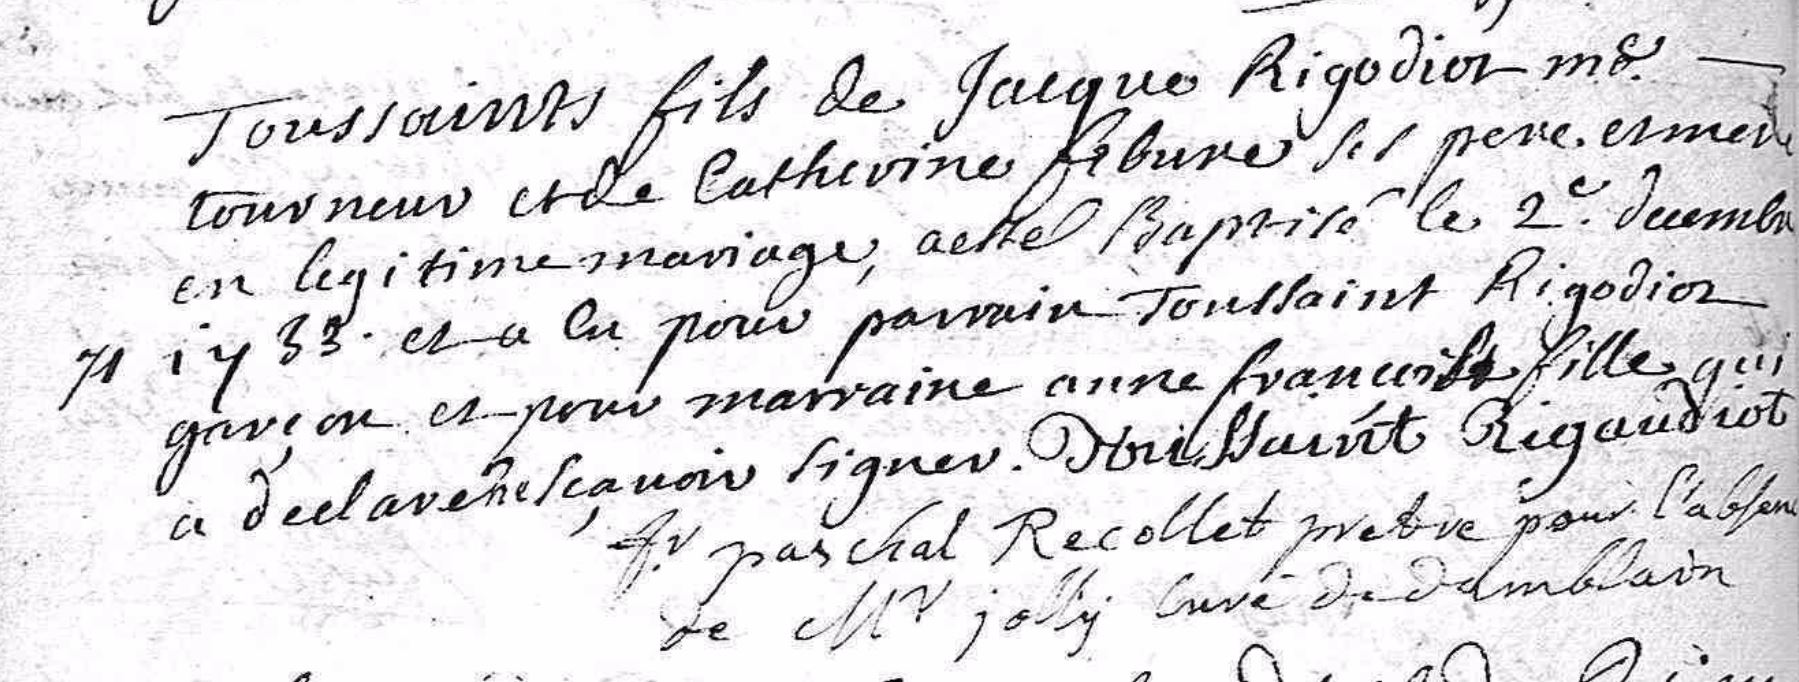 Toussaints fils de Jacque Rigodiot md. —
tourneur et de Catherine febure ses pere. et mere
en legitime mariage, aesté Baptisé le 2e. decembre
71 i733. et a Eu pour parrain Toussaint Rigodiot
garçon et pour marraine anne françoise fille qui
a declaré ne sçavoir signer. Toussaint Rigaudiot
fr paschal Recollet pretre pour l'absen
de Mr jolly Curé de damblain